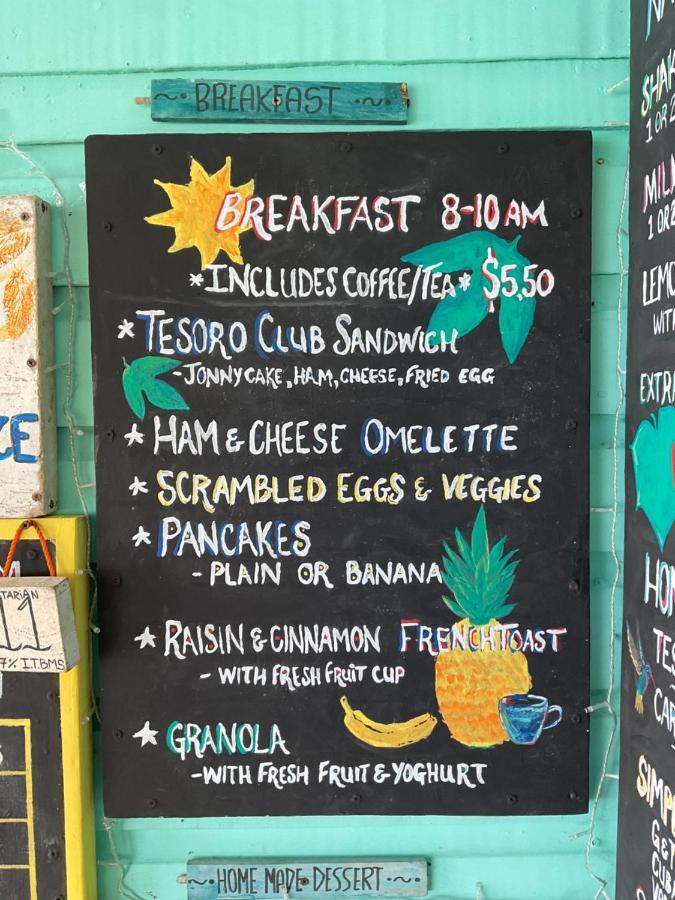 ~ BREAKFAST ~
BREAKFAST 8-10 AM
*INCLUDES COFFEE/TEA* $5,50
*TESORO CLUB SANDWICH
-JONNYCAKE, HAM, CHEESE, FRIED EGG
*HAM & CHEESE OMELETTE
*SCRAMBLED EGGS & VEGGIES
*PANCAKES
-PLAIN OR BANANA
*RAISIN & CINNAMON FRENCHTOAST
-WITH FRESH FRUIT CUP
*GRANOLA
-WITH FRESH FRUIT & YOGHURT
~HOME MADE DESSERT~
11
7% I.T.B.M.S
1 OR 2
1 OR 2